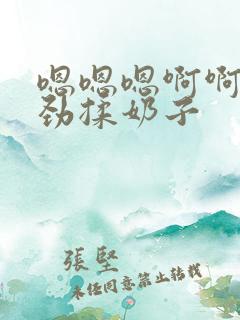 嗯嗯嗯啊啊
劲揉奶子
張堅
未经同意禁止转载